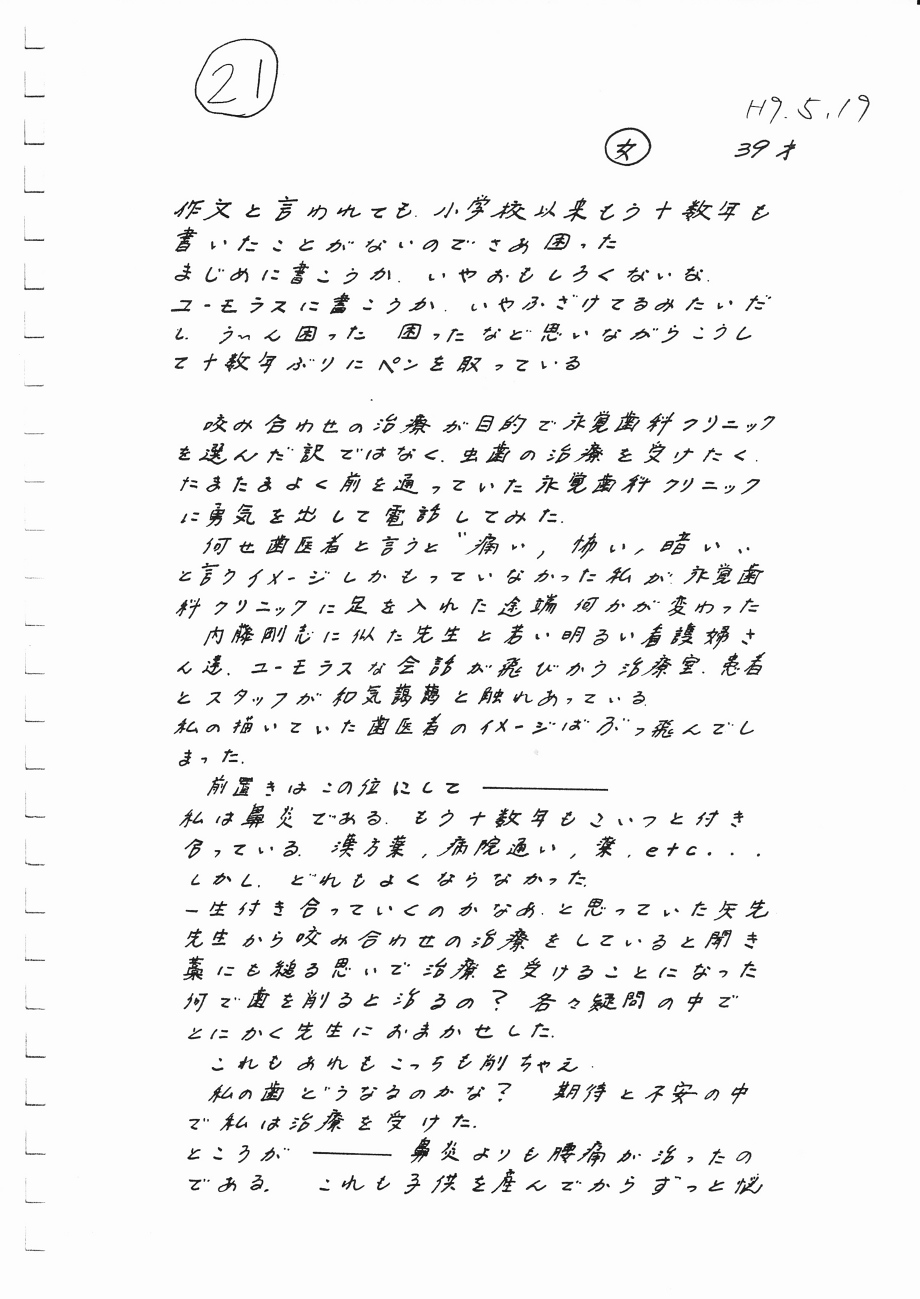 21
H9.5.19
女 39才
作文と言われても、小学校以来もう十数年も
書いたことがないのでさあ困った
まじめに書こうか、いやおもしろくないな、
ユーモラスに書こうか、いやふざけてるみたいだ
し、う〜ん困った 困ったなど思いながらこうし
て十数年ぶりにペンを取っている
咬み合わせの治療が目的で永覚歯科クリニック
を選んだ訳ではなく、虫歯の治療を受けたく、
たまたまよく前を通っていた永覚歯科クリニック
に勇気を出して電話してみた。
何せ歯医者と言うと"痛い, 怖い, 暗い"
と言うイメージしかもっていなかった私が、永覚歯
科クリニックに足を入れた途端 何かが変わった
内藤剛志に似た先生と若い明るい看護婦さ
ん達、ユーモラスな会話が飛びかう治療室、患者
とスタッフが和気藹藹と触れあっている。
私の描いていた歯医者のイメージはぶっ飛んでし
まった。
前置きはこの位にして ――――
私は鼻炎である。もう十数年もこいつと付き
合っている。漢方薬, 病院通い, 薬, etc...
しかし、どれもよくならなかった。
一生付き合っていくのかなあ、と思っていた矢先
先生から咬み合わせの治療をしていると聞き
藁にも縋る思いで治療を受けることになった
何で歯を削ると治るの? 各々疑問の中で
とにかく先生におまかせした。
これもあれもこっちも削ちゃえ
私の歯どうなるのかな? 期待と不安の中
で私は治療を受けた。
ところが ―――― 鼻炎よりも腰痛が治ったの
である。 これも子供を産んでからずっと悩